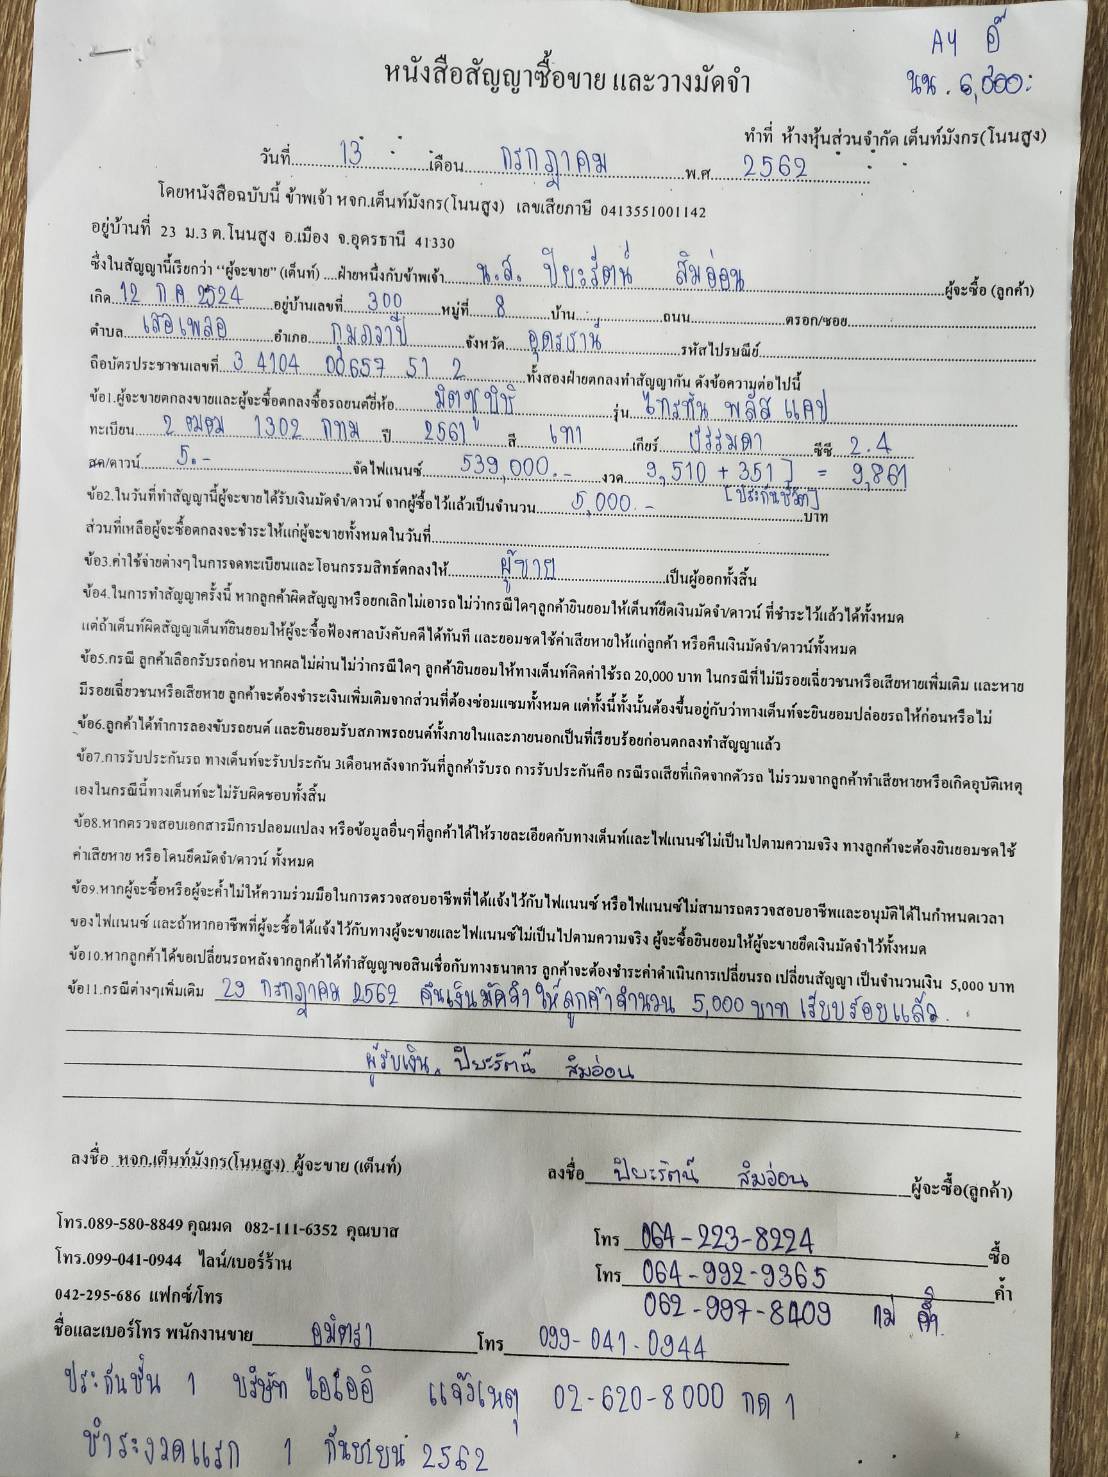 A4 อี๊
นน. 6,800.-
หนังสือสัญญาซื้อขาย และวางมัดจำ
ทำที่ ห้างหุ้นส่วนจำกัด เต็นท์มังกร(โนนสูง)
วันที่ 13 เดือน กรกฎาคม พ.ศ 2562
โดยหนังสือฉบับนี้ ข้าพเจ้า หจก.เต็นท์มังกร(โนนสูง) เลขเสียภาษี 0413551001142
อยู่บ้านที่ 23 ม.3 ต.โนนสูง อ.เมือง จ.อุดรธานี 41330
ซึ่งในสัญญานี้เรียกว่า “ผู้จะขาย” (เต็นท์) ....ฝ่ายหนึ่งกับข้าพเจ้า น.ส. ปิยะรัตน์ สิมอ่อน ผู้จะซื้อ (ลูกค้า)
เกิด 12 ก.ค 2524 อยู่บ้านเลขที่ 300 หมู่ที่ 8 บ้าน ถนน ตรอก/ซอย
ตำบล เสอเพลอ อำเภอ กุมภวาปี จังหวัด อุดรธานี รหัสไปรษณีย์
ถือบัตรประชาชนเลขที่ 3 4104 00657 51 2 ทั้งสองฝ่ายตกลงทำสัญญากัน ดังข้อความต่อไปนี้
ข้อ1.ผู้จะขายตกลงขายและผู้จะซื้อตกลงซื้อรถยนต์ยี่ห้อ มิตซูบิชิ รุ่น ไทรทัน พลัส แคป
ทะเบียน 2 ฒฒ 1302 กทม ปี 2561 สี เทา เกียร์ ธรรมดา ซีซี 2.4
สด/ดาวน์ 5.- จัดไฟแนนซ์ 539,000.- งวด 9,510 + 351] = 9,861
[ประกันชีวิต]
ข้อ2.ในวันที่ทำสัญญานี้ผู้จะขายได้รับเงินมัดจำ/ดาวน์ จากผู้ซื้อไว้แล้วเป็นจำนวน 5,000.- บาท
ส่วนที่เหลือผู้จะซื้อตกลงจะชำระให้แก่ผู้จะขายทั้งหมดในวันที่
ข้อ3.ค่าใช้จ่ายต่างๆในการจดทะเบียนและโอนกรรมสิทธิ์ตกลงให้ ผู้ขาย เป็นผู้ออกทั้งสิ้น
ข้อ4.ในการทำสัญญาครั้งนี้ หากลูกค้าผิดสัญญาหรือยกเลิกไม่เอารถไม่ว่ากรณีใดๆลูกค้ายินยอมให้เต็นท์ยึดเงินมัดจำ/ดาวน์ ที่ชำระไว้แล้วได้ทั้งหมด
แต่ถ้าเต็นท์ผิดสัญญาเต็นท์ยินยอมให้ผู้จะซื้อฟ้องศาลบังคับคดีได้ทันที และยอมชดใช้ค่าเสียหายให้แก่ลูกค้า หรือคืนเงินมัดจำ/ดาวน์ทั้งหมด
ข้อ5.กรณี ลูกค้าเลือกรับรถก่อน หากผลไม่ผ่านไม่ว่ากรณีใดๆ ลูกค้ายินยอมให้ทางเต็นท์คิดค่าใช้รถ 20,000 บาท ในกรณีที่ไม่มีรอยเฉี่ยวชนหรือเสียหายเพิ่มเติม และหาย
มีรอยเฉี่ยวชนหรือเสียหาย ลูกค้าจะต้องชำระเงินเพิ่มเติมจากส่วนที่ต้องซ่อมแซมทั้งหมด แต่ทั้งนี้ทั้งนั้นต้องขึ้นอยู่กับว่าทางเต็นท์จะยินยอมปล่อยรถให้ก่อนหรือไม่
ข้อ6.ลูกค้าได้ทำการลองขับรถยนต์ และยินยอมรับสภาพรถยนต์ทั้งภายในและภายนอกเป็นที่เรียบร้อยก่อนตกลงทำสัญญาแล้ว
ข้อ7.การรับประกันรถ ทางเต็นท์จะรับประกัน 3เดือนหลังจากวันที่ลูกค้ารับรถ การรับประกันคือ กรณีรถเสียที่เกิดจากตัวรถ ไม่รวมจากลูกค้าทำเสียหายหรือเกิดอุบัติเหตุ
เองในกรณีนี้ทางเต็นท์จะไม่รับผิดชอบทั้งสิ้น
ข้อ8.หากตรวจสอบเอกสารมีการปลอมแปลง หรือข้อมูลอื่นๆที่ลูกค้าได้ให้รายละเอียดกับทางเต็นท์และไฟแนนซ์ไม่เป็นไปตามความจริง ทางลูกค้าจะต้องยินยอมชดใช้
ค่าเสียหาย หรือโดนยึดมัดจำ/ดาวน์ ทั้งหมด
ข้อ9.หากผู้จะซื้อหรือผู้จะค้ำไม่ให้ความร่วมมือในการตรวจสอบอาชีพที่ได้แจ้งไว้กับไฟแนนซ์ หรือไฟแนนซ์ไม่สามารถตรวจสอบอาชีพและอนุมัติได้ในกำหนดเวลา
ของไฟแนนซ์ และถ้าหากอาชีพที่ผู้จะซื้อได้แจ้งไว้กับทางผู้จะขายและไฟแนนซ์ไม่เป็นไปตามความจริง ผู้จะซื้อยินยอมให้ผู้จะขายยึดเงินมัดจำไว้ทั้งหมด
ข้อ10.หากลูกค้าได้ขอเปลี่ยนรถหลังจากลูกค้าได้ทำสัญญาขอสินเชื่อกับทางธนาคาร ลูกค้าจะต้องชำระค่าดำเนินการเปลี่ยนรถ เปลี่ยนสัญญา เป็นจำนวนเงิน 5,000 บาท
ข้อ11.กรณีต่างๆเพิ่มเติม 29 กรกฎาคม 2562 คืนเงินมัดจำให้ลูกค้าจำนวน 5,000 บาท เรียบร้อยแล้ว.
ผู้รับเงิน. ปิยะรัตน์ สิมอ่อน
ลงชื่อ หจก.เต็นท์มังกร(โนนสูง) ผู้จะขาย (เต็นท์)
ลงชื่อ ปิยะรัตน์ สิมอ่อน ผู้จะซื้อ(ลูกค้า)
โทร.089-580-8849 คุณมด 082-111-6352 คุณบาส
โทร 064-223-8224 ซื้อ
โทร.099-041-0944 ไลน์/เบอร์ร้าน
โทร 064-992-9365 ค้ำ
042-295-686 แฟกซ์/โทร
062-997-8409 แม่ ค้ำ.
ชื่อและเบอร์โทร พนักงานขาย อมิตรา โทร 099-041-0944
ประกันชั้น 1 บริษัท ไอโออิ แจ้งเหตุ 02-620-8000 กด 1
ชำระงวดแรก 1 กันยายน 2562